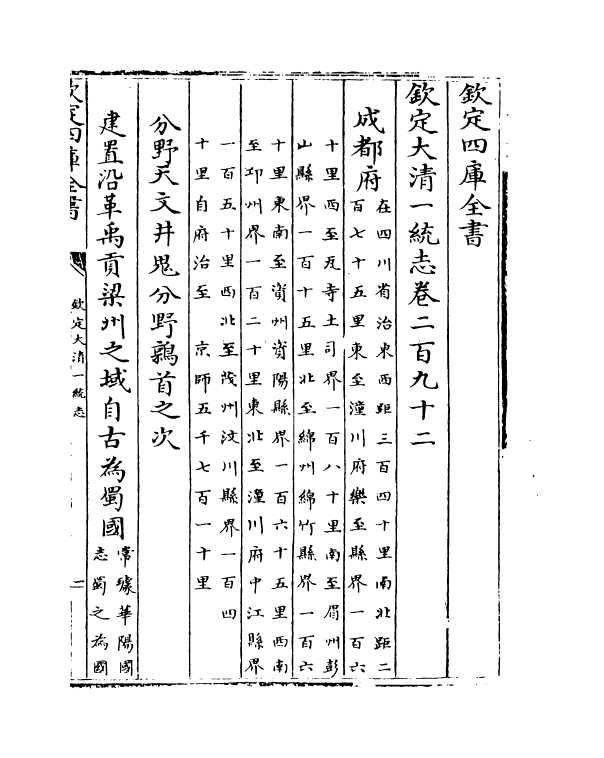 欽定四庫全書
欽定大清一統志卷二百九十二
成都府在四川省治東西距三百四十里南北距二
百七十五里東至潼川府樂至縣界一百六
十里西至瓦寺土司界一百八十里南至眉州彭
山縣界一百十五里北至綿州綿竹縣界一百六
十里東南至資州資陽縣界一百六十五里西南
至邛州界一百二十里東北至潼川府中江縣界
一百五十里西北至茂州汶川縣界一百四
十里自府治至 京師五千七百一十里
分野天文井鬼分野鶉首之次
建置沿革禹貢梁州之域自古為蜀國常璩華陽國
志蜀之為國
欽定四庫全書
欽定大清一統志